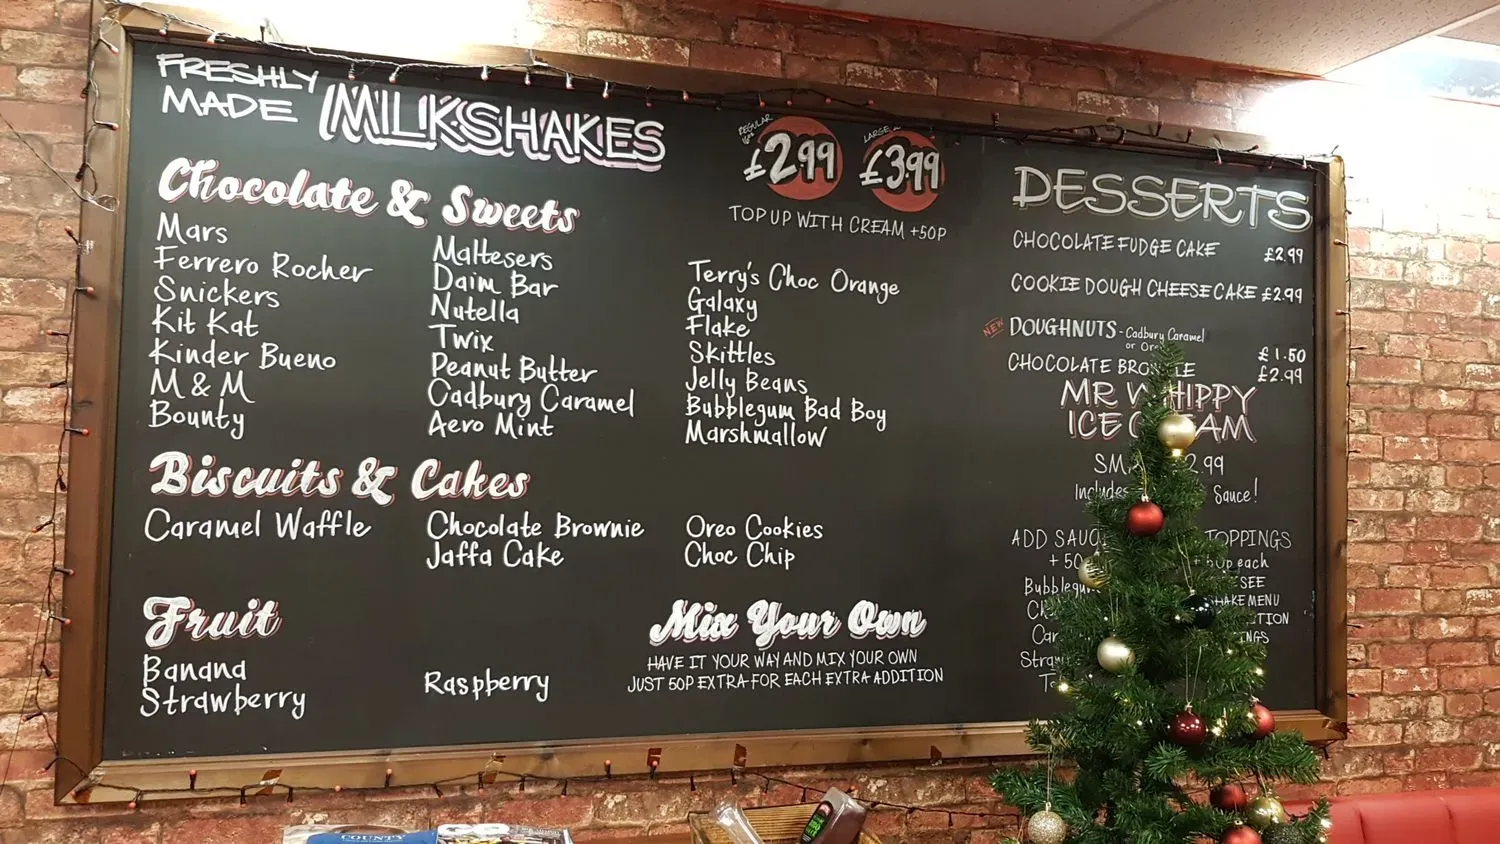 FRESHLY
MADE MILKSHAKES
REGULAR
£2.99
LARGE
£3.99
TOP UP WITH CREAM +50P
Chocolate & Sweets
Mars
Ferrero Rocher
Snickers
Kit Kat
Kinder Bueno
M & M
Bounty
Maltesers
Daim Bar
Nutella
Twix
Peanut Butter
Cadbury Caramel
Aero Mint
Terry's Choc Orange
Galaxy
Flake
Skittles
Jelly Beans
Bubblegum Bad Boy
Marshmallow
Biscuits & Cakes
Caramel Waffle
Chocolate Brownie
Jaffa Cake
Oreo Cookies
Choc Chip
Fruit
Banana
Strawberry
Raspberry
Mix Your Own
HAVE IT YOUR WAY AND MIX YOUR OWN
JUST 50P EXTRA FOR EACH EXTRA ADDITION
DESSERTS
CHOCOLATE FUDGE CAKE £2.99
COOKIE DOUGH CHEESECAKE £2.99
NEW DOUGHNUTS - Cadbury Caramel
or £1.50
CHOCOLATE £2.99
MR
ICE
Includes Sauce!
ADD
TOPPINGS
each
SEE
MENU
COUNTY